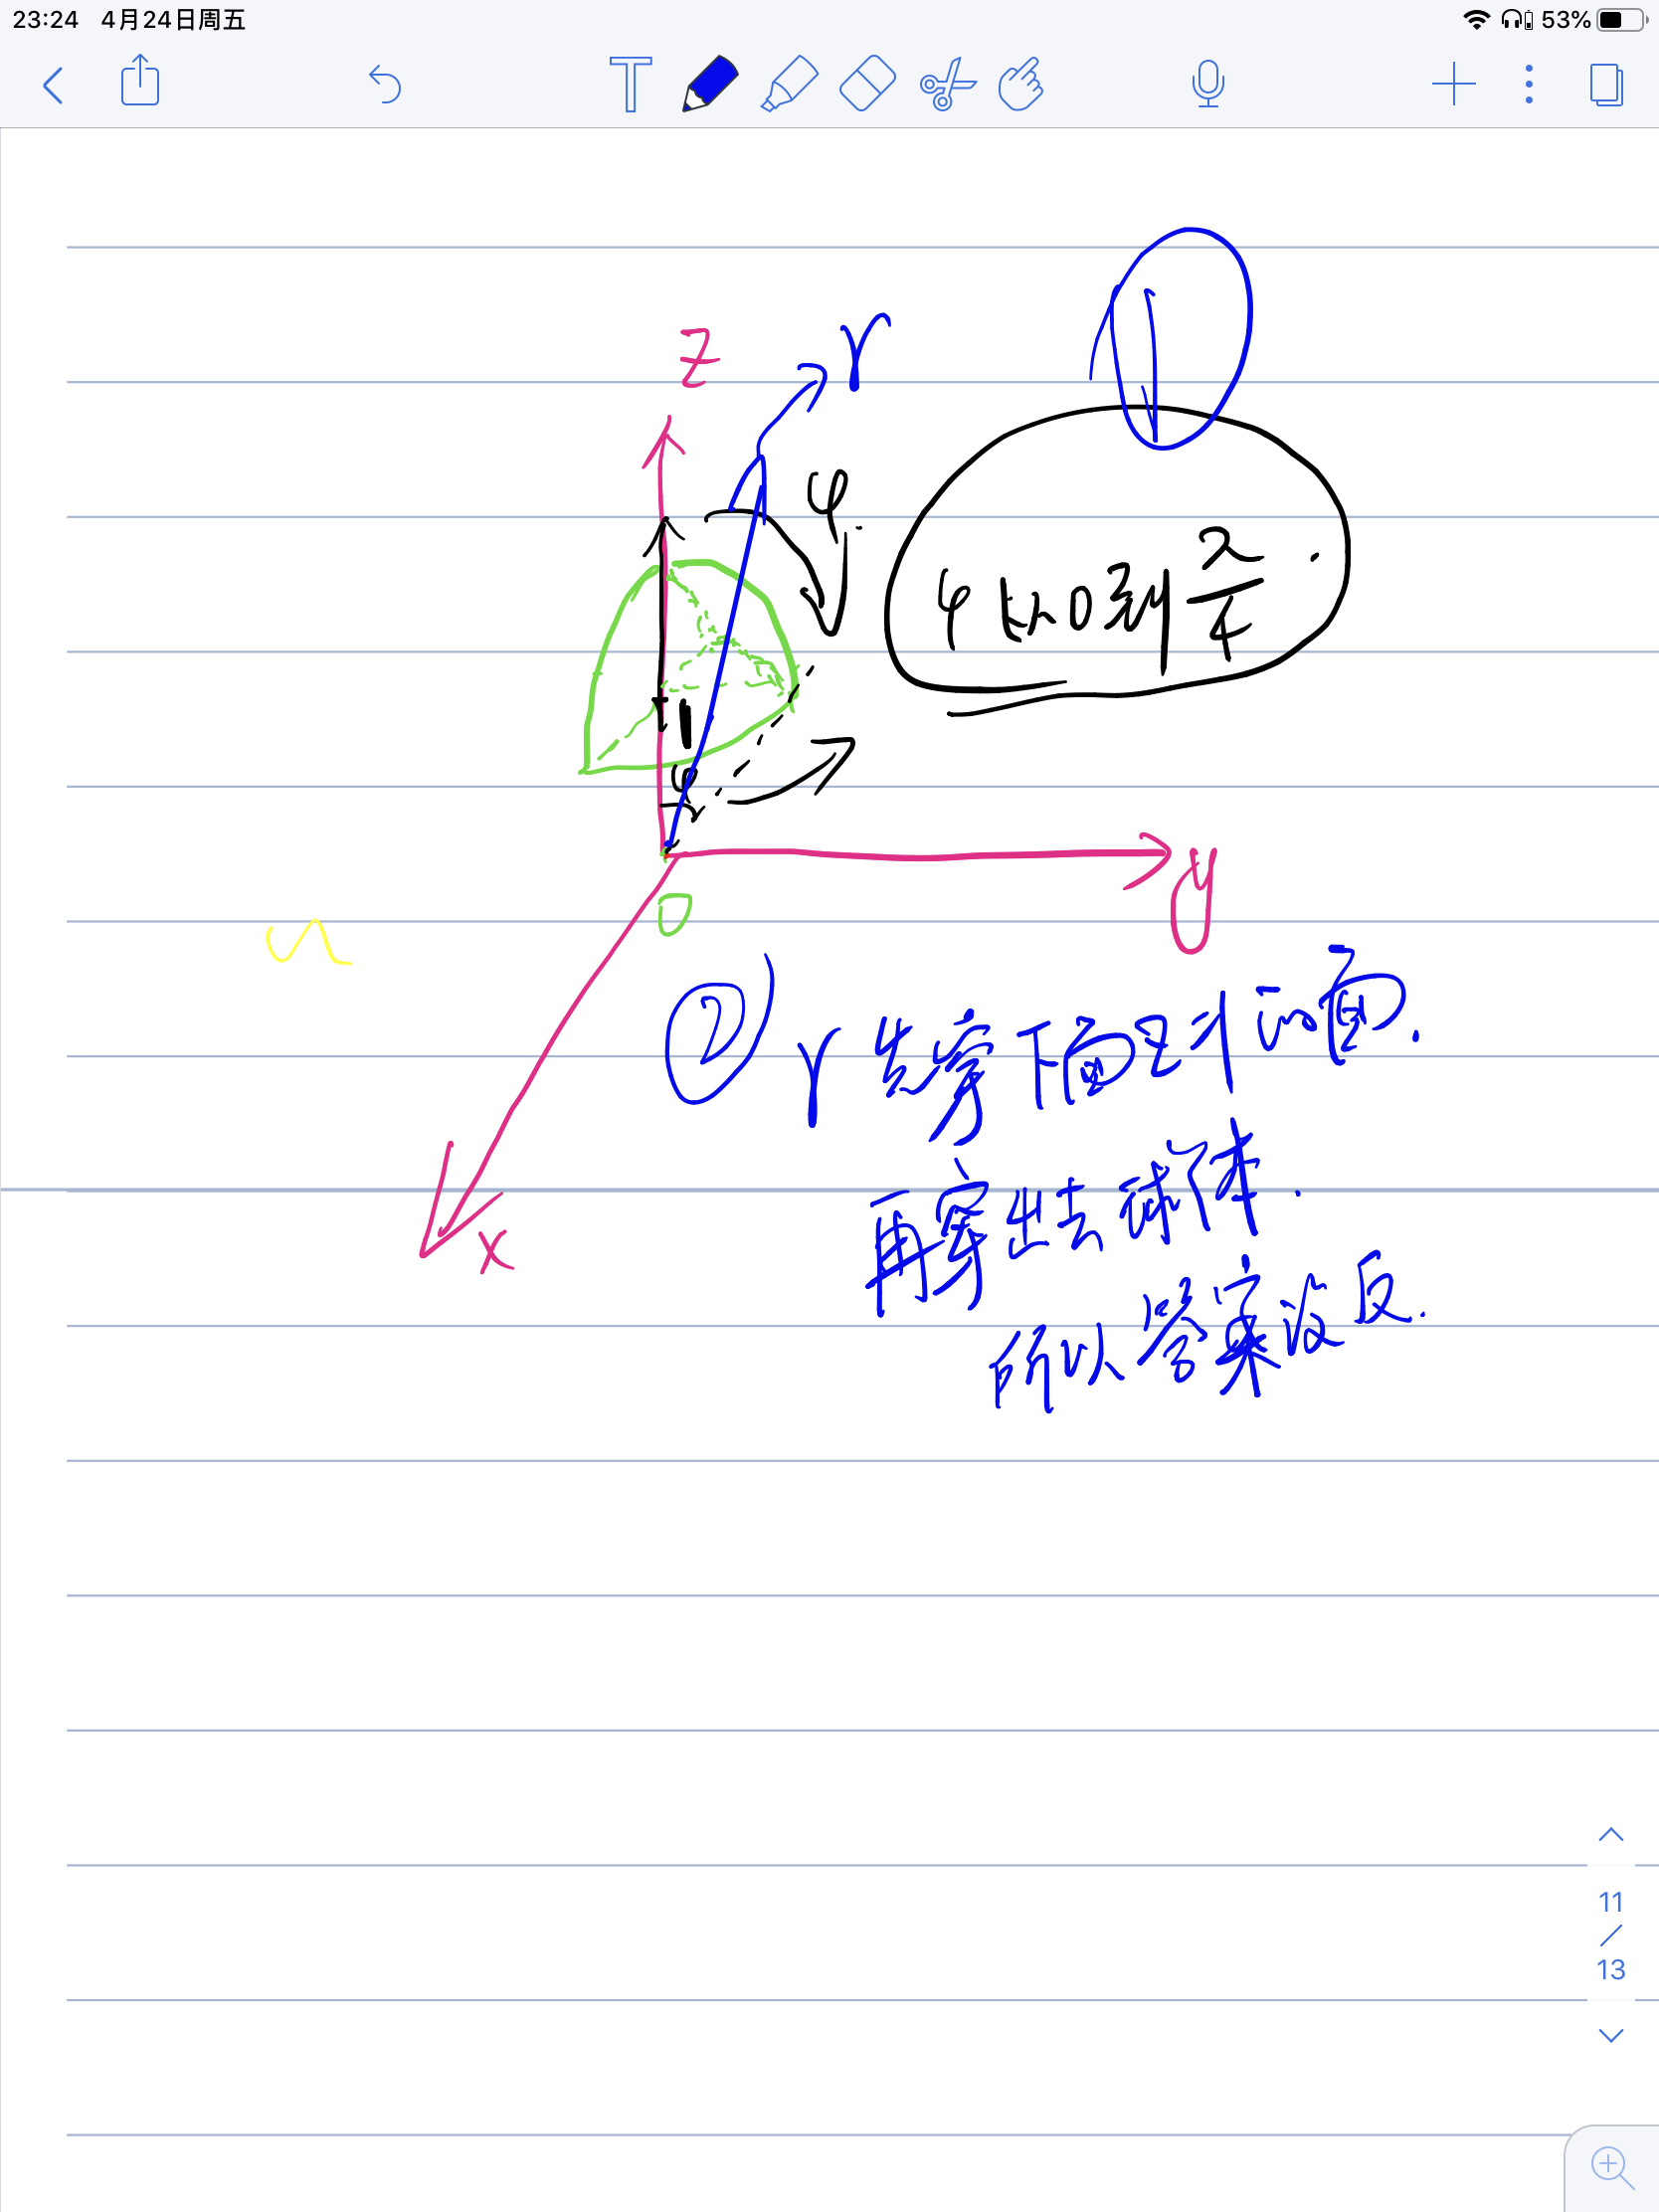 23:24 4月24日周五 53%
T
z
r
φ
①
φ从0到π/4.
φ
y
0
② r先穿下面Z=1的面.
再穿出去球体.
所以答案没反.
x
11
/
13